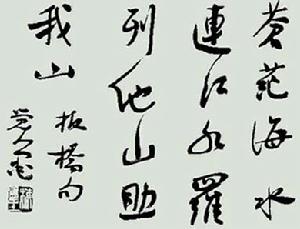 蒼茫海水
連江水羅
列他山助
我山
板橋句